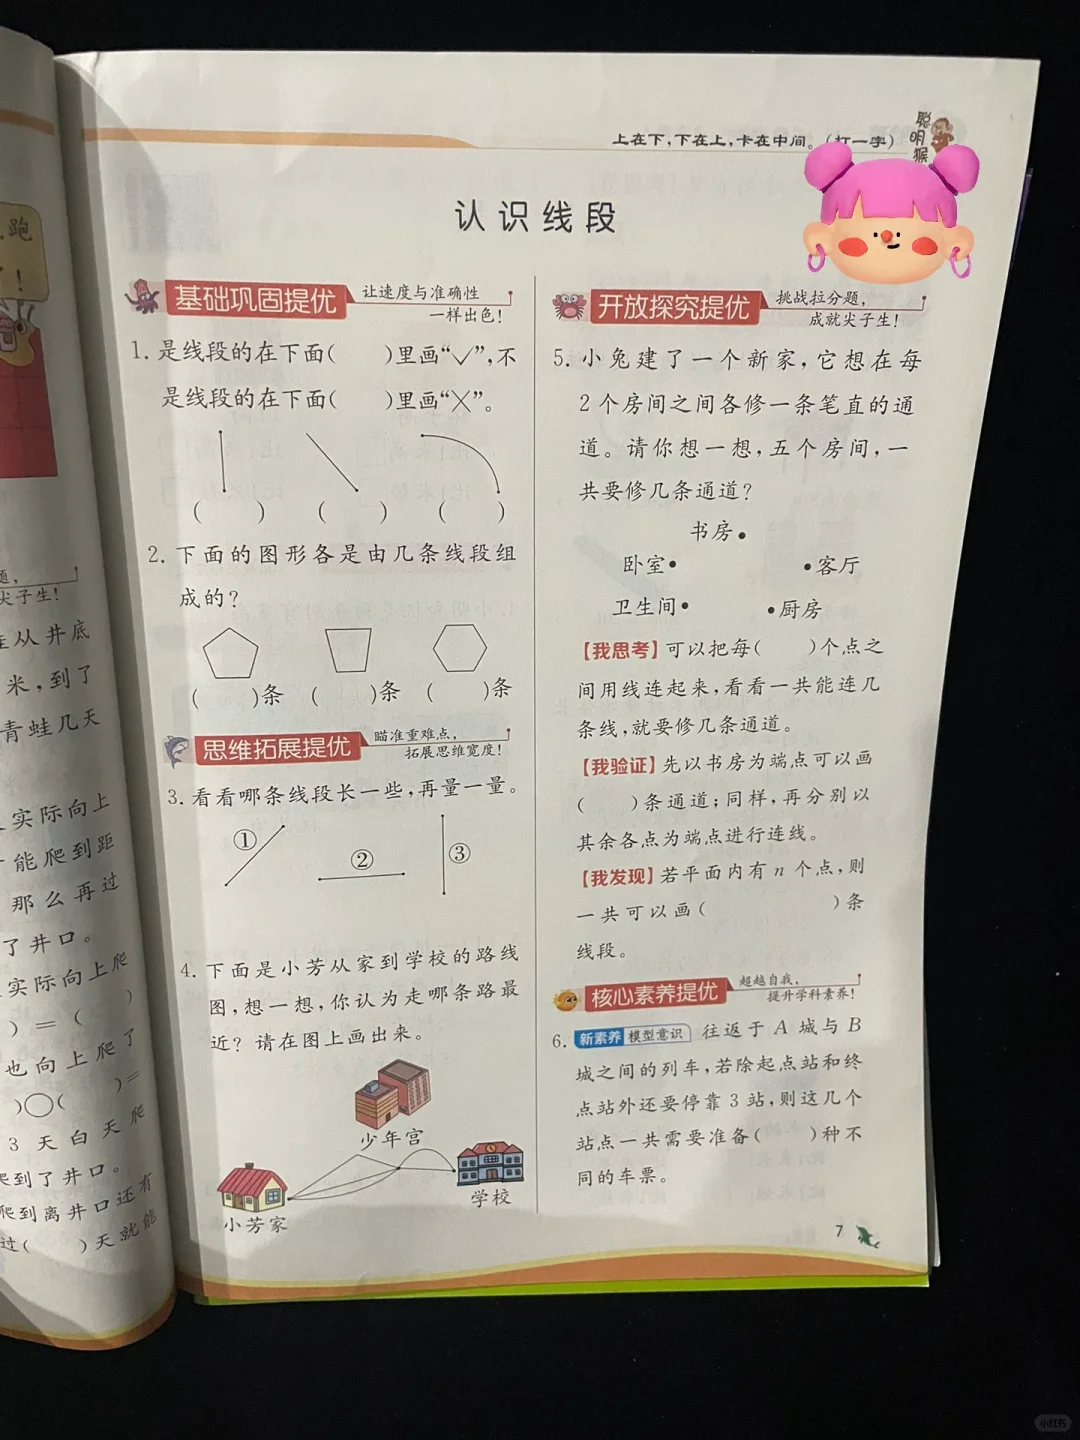 上在下，下在上，卡在中间。（打一字）
聪明猴
认识线段
基础巩固提优 让速度与准确性
一样出色！
1. 是线段的在下面(　　)里画“✓”，不
是线段的在下面(　　)里画“╳”。
(　　) (　　) (　　)
2. 下面的图形各是由几条线段组
成的？
(　　)条 (　　)条 (　　)条
思维拓展提优 瞄准重难点，
拓展思维宽度！
3. 看看哪条线段长一些，再量一量。
① ② ③
4. 下面是小芳从家到学校的路线
图，想一想，你认为走哪条路最
近？请在图上画出来。
少年宫
学校
小芳家
开放探究提优 挑战拉分题，
成就尖子生！
5. 小兔建了一个新家，它想在每
2个房间之间各修一条笔直的通
道。请你想一想，五个房间，一
共要修几条通道？
书房
卧室 客厅
卫生间 厨房
【我思考】可以把每(　　)个点之
间用线连起来，看看一共能连几
条线，就要修几条通道。
【我验证】先以书房为端点可以画
(　　)条通道；同样，再分别以
其余各点为端点进行连线。
【我发现】若平面内有 n 个点，则
一共可以画(　　　　)条
线段。
核心素养提优 超越自我，
提升学科素养！
6. 新素养 模型意识 往返于 A 城与 B
城之间的列车，若除起点站和终
点站外还要停靠 3 站，则这几个
站点一共需要准备(　　)种不
同的车票。
7
跑
！
题，
尖子生！
从井底
米，到了
青蛙几天
实际向上
能爬到距
那么再过
了井口。
实际向上爬
)
)＝(
也向上爬了
)＝
)○(
3 天白天爬
爬到了井口。
爬到离井口还有
过(　　)天就能
小红书